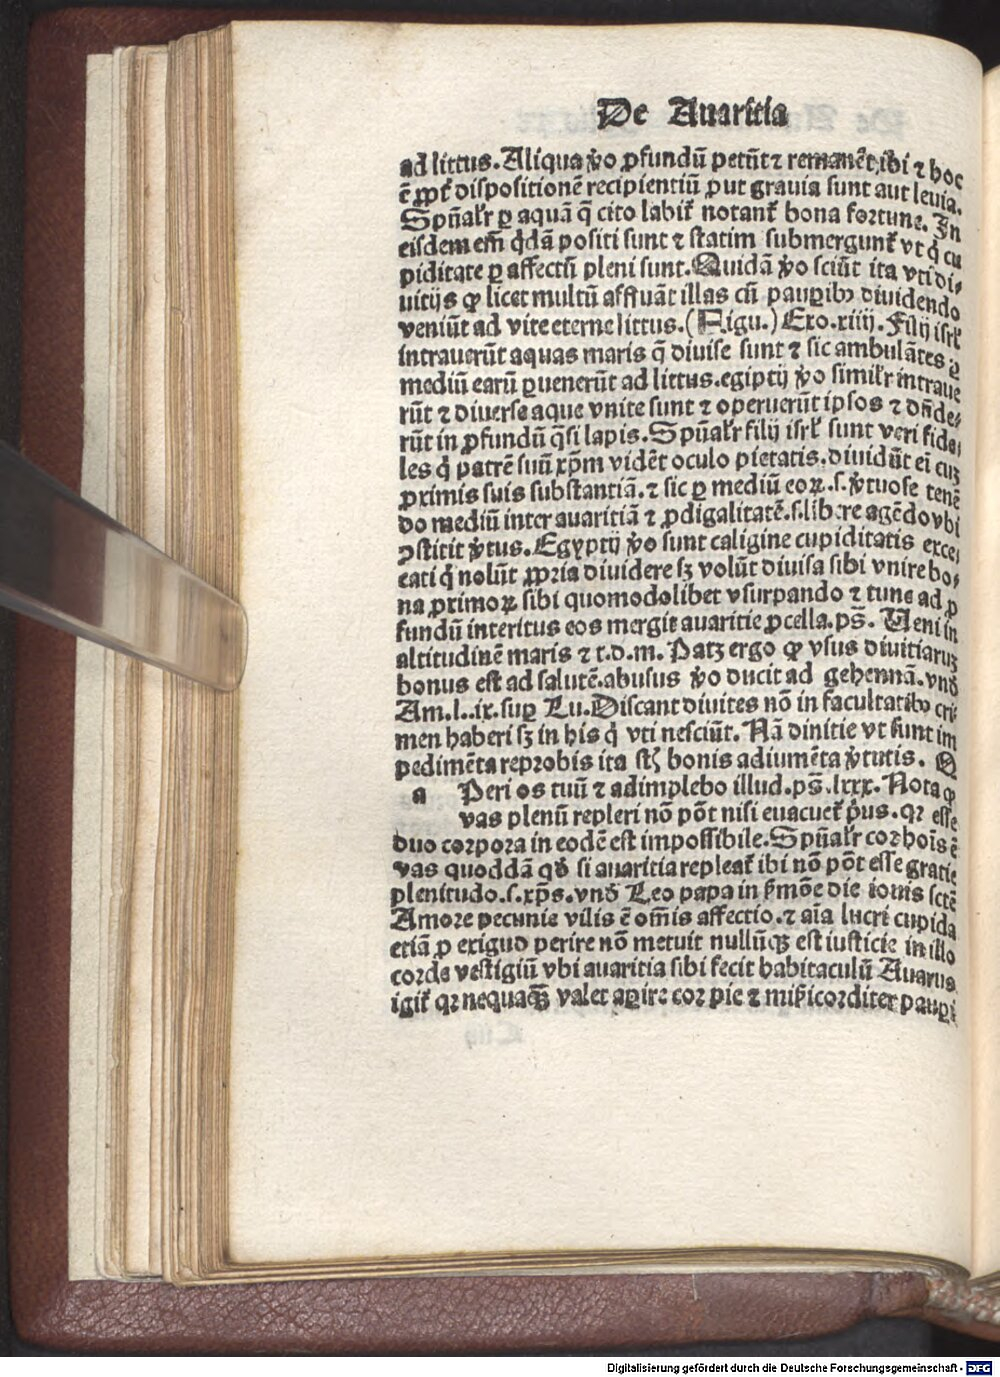 De Auaritia
ad littus. Aliqua ꝟo ꝓfundū petūt ⁊ remanēt ibi ⁊ hoc
ē ꝓpt̄ dispositionē recipientiū ꝓut grauia sunt aut leuia.
Spūalr̄ ꝑ aquā q̄ cito labit̄ notant̄ bona fortune. In
eisdem em̄ q̇dā positi sunt ⁊ statim submergunt̄ vt q̇ cu
piditate ꝑ affectū pleni sunt. Quidā ꝟo sciūt ita vti di⸗
uitijs ꝙ licet multū affluāt illas cū pauꝑibꝰ diuidendo
veniūt ad vite eterne littus. (Figu.) Exo. xiiij. Filij isrl̄
intrauerūt aquas maris q̄ diuise sunt ⁊ sic ambulātes ꝑ
mediū earū ꝑuenerūt ad littus. egiptij ꝟo similr̄ intraue
rūt ⁊ diuerse aque vnite sunt ⁊ operuerūt ipsos ⁊ dn̄de⸗
rūt in ꝓfundū q̄si lapis. Spūalr̄ filij isrl̄ sunt veri fide⸗
les q̇ patrē suū xp̄m vidēt oculo pietatis. diuidūt ei cuꝫ
ꝓximis suis substantiā. ⁊ sic ꝑ mediū eoꝝ .s. ꝟtuose tenē
do mediū inter auaritiā ⁊ ꝓdigalitatē. s. libere agēdo vbi
ꝯstitit ꝟtus. Egyptij ꝟo sunt caligine cupiditatis exce⸗
cati q̇ nolūt ꝓpria diuidere sꝫ volūt diuisa sibi vnire bo⸗
na ꝓximoꝝ sibi quomodolibet vsurpando ⁊ tunc ad ꝓ
fundū interitus eos mergit auaritie ꝓcella. ps̄. Ueni in
altitudinē maris ⁊ t. d. m. Patꝫ ergo ꝙ vsus diuitiaruꝫ
bonus est ad salutē. abusus ꝟo ducit ad gehennā. vnꝺ̄
Am. l. ix. suꝑ Lu. Discant diuites nō in facultatibꝰ cri⸗
men haberi sꝫ in his q̇ vti nesciūt. Nā diuitie vt sunt im
pedimēta reprobis ita st̄ bonis adiumēta ꝟtutis. O
a Peri os tuū ⁊ adimplebo illud. ps̄. lxxx. Nota ꝙ
vas plenū repleri nō pōt nisi euacuet̄ pͥus. qꝛ esse
duo corpora in eodē est impossibile. Spūalr̄ cor hoīs ē
vas quoddā qꝺ̄ si auaritia repleat̄ ibi nō pōt esse gratie
plenitudo. s. xp̄s. vnꝺ̄ Leo papa in ẜmōe die iouis sctē
Amore pecunie vilis ē om̄is affectio. ⁊ aīa lucri cupida
etiā ꝓ exiguo perire nō metuit nullūqꝫ est iusticie in illo
corde vestigiū vbi auaritia sibi fecit habitaculū Auarus
igit̄ qꝛ nequaqꝫ̄ valet aꝑire cor pie ⁊ miẜicorditer pauꝑi
Digitalisierung gefördert durch die Deutsche Forschungsgemeinschaft - DFG